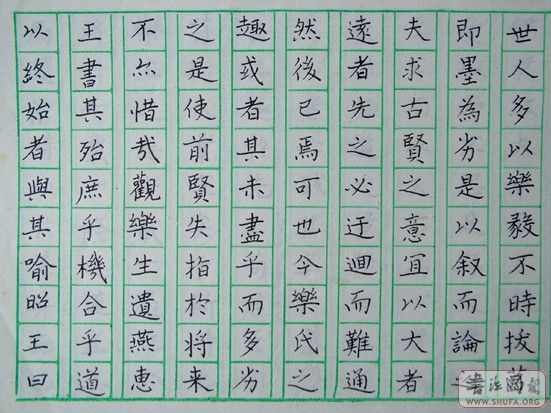 世人多以樂毅不時拔莒
即墨為劣是以叙而論
夫求古賢之意宜以大者
遠者先之必迂迴而難通
然後已焉可也今樂氏之
趣或者其未盡乎而多劣
之是使前賢失指於将来
不亦惜哉觀樂生遺燕惠
王書其殆庶乎機合乎道
以終始者與其喻昭王曰
WWW.SHUFA.ORG